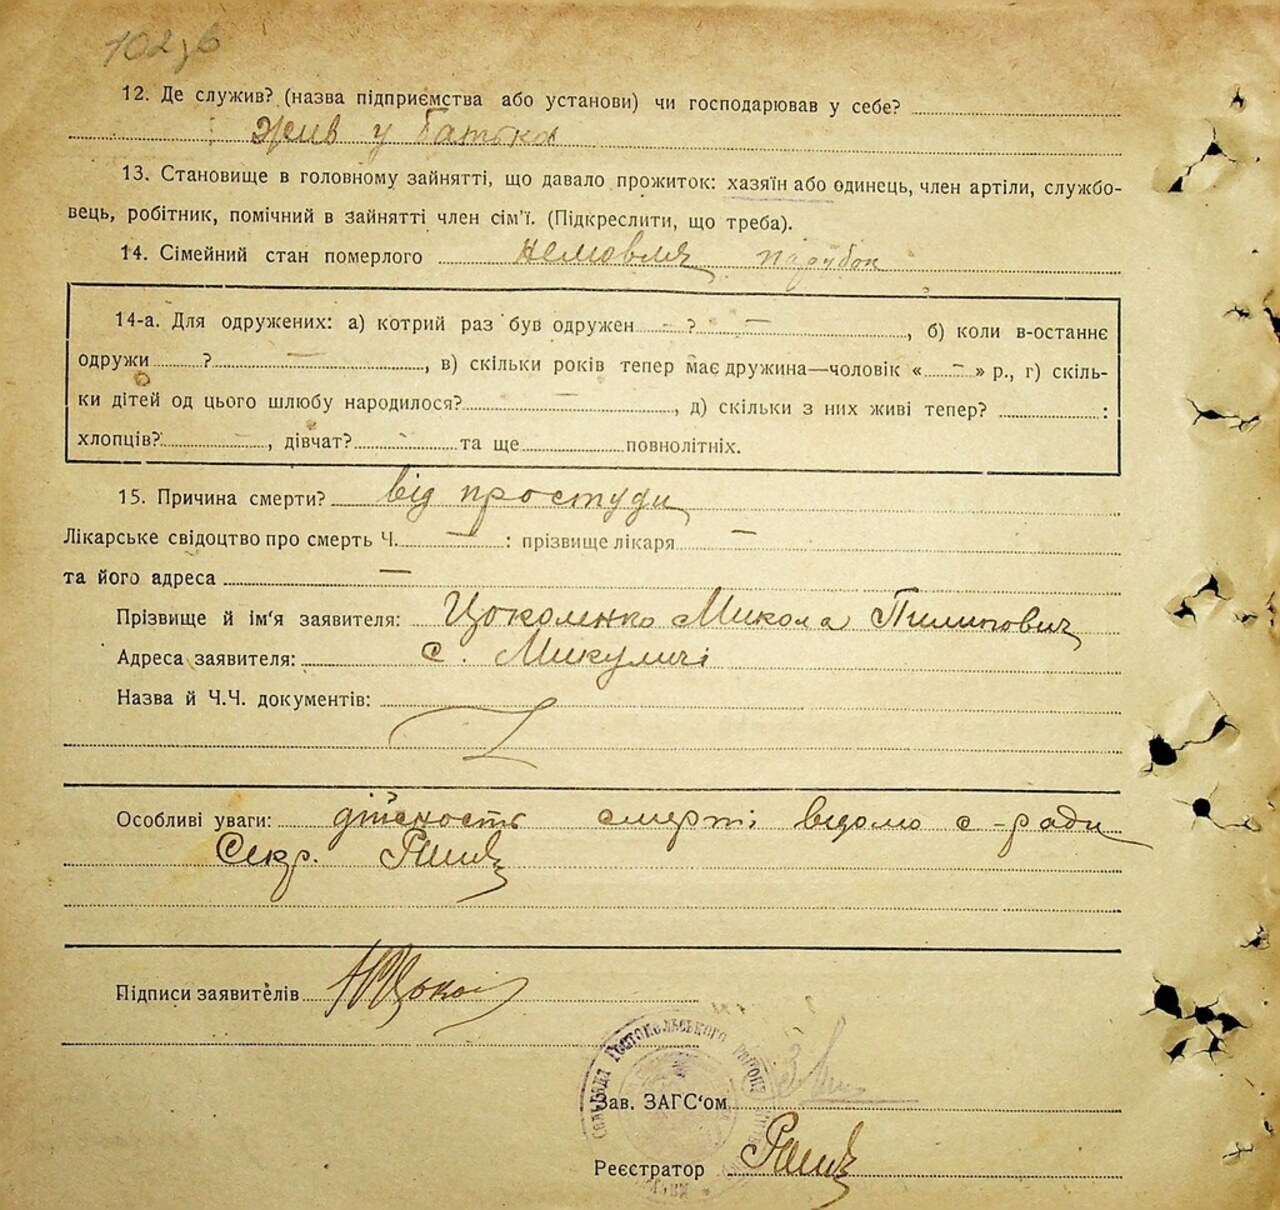 12. Де служив? (назва підприємства або установи) чи господарював у себе?
жив у батька
13. Становище в головному зайнятті, що давало прожиток: хазяїн або одинець, член артіли, службо-
вець, робітник, помічний в зайнятті член сім'ї. (Підкреслити, що треба).
14. Сімейний стан померлого немовля парубок
14-а. Для одружених: а) котрий раз був одружен - ? —, б) коли в-останнє
одружи ? —, в) скільки років тепер має дружина—чоловік « - » р., г) скіль-
ки дітей од цього шлюбу народилося? —, д) скільки з них живі тепер? :
хлопців? -, дівчат? - та ще повнолітніх.
15. Причина смерти? від простуди
Лікарське свідоцтво про смерть Ч. — : прізвище лікаря —
та його адреса —
Прізвище й ім'я заявителя: Цоколенко Микола Пилипович
Адреса заявителя: с. Микуличі
Назва й Ч.Ч. документів:
Особливі уваги: дійсность смерті відомо с-ради
Секр.
Підписи заявителів
Зав. ЗАГС'ом
Реєстратор